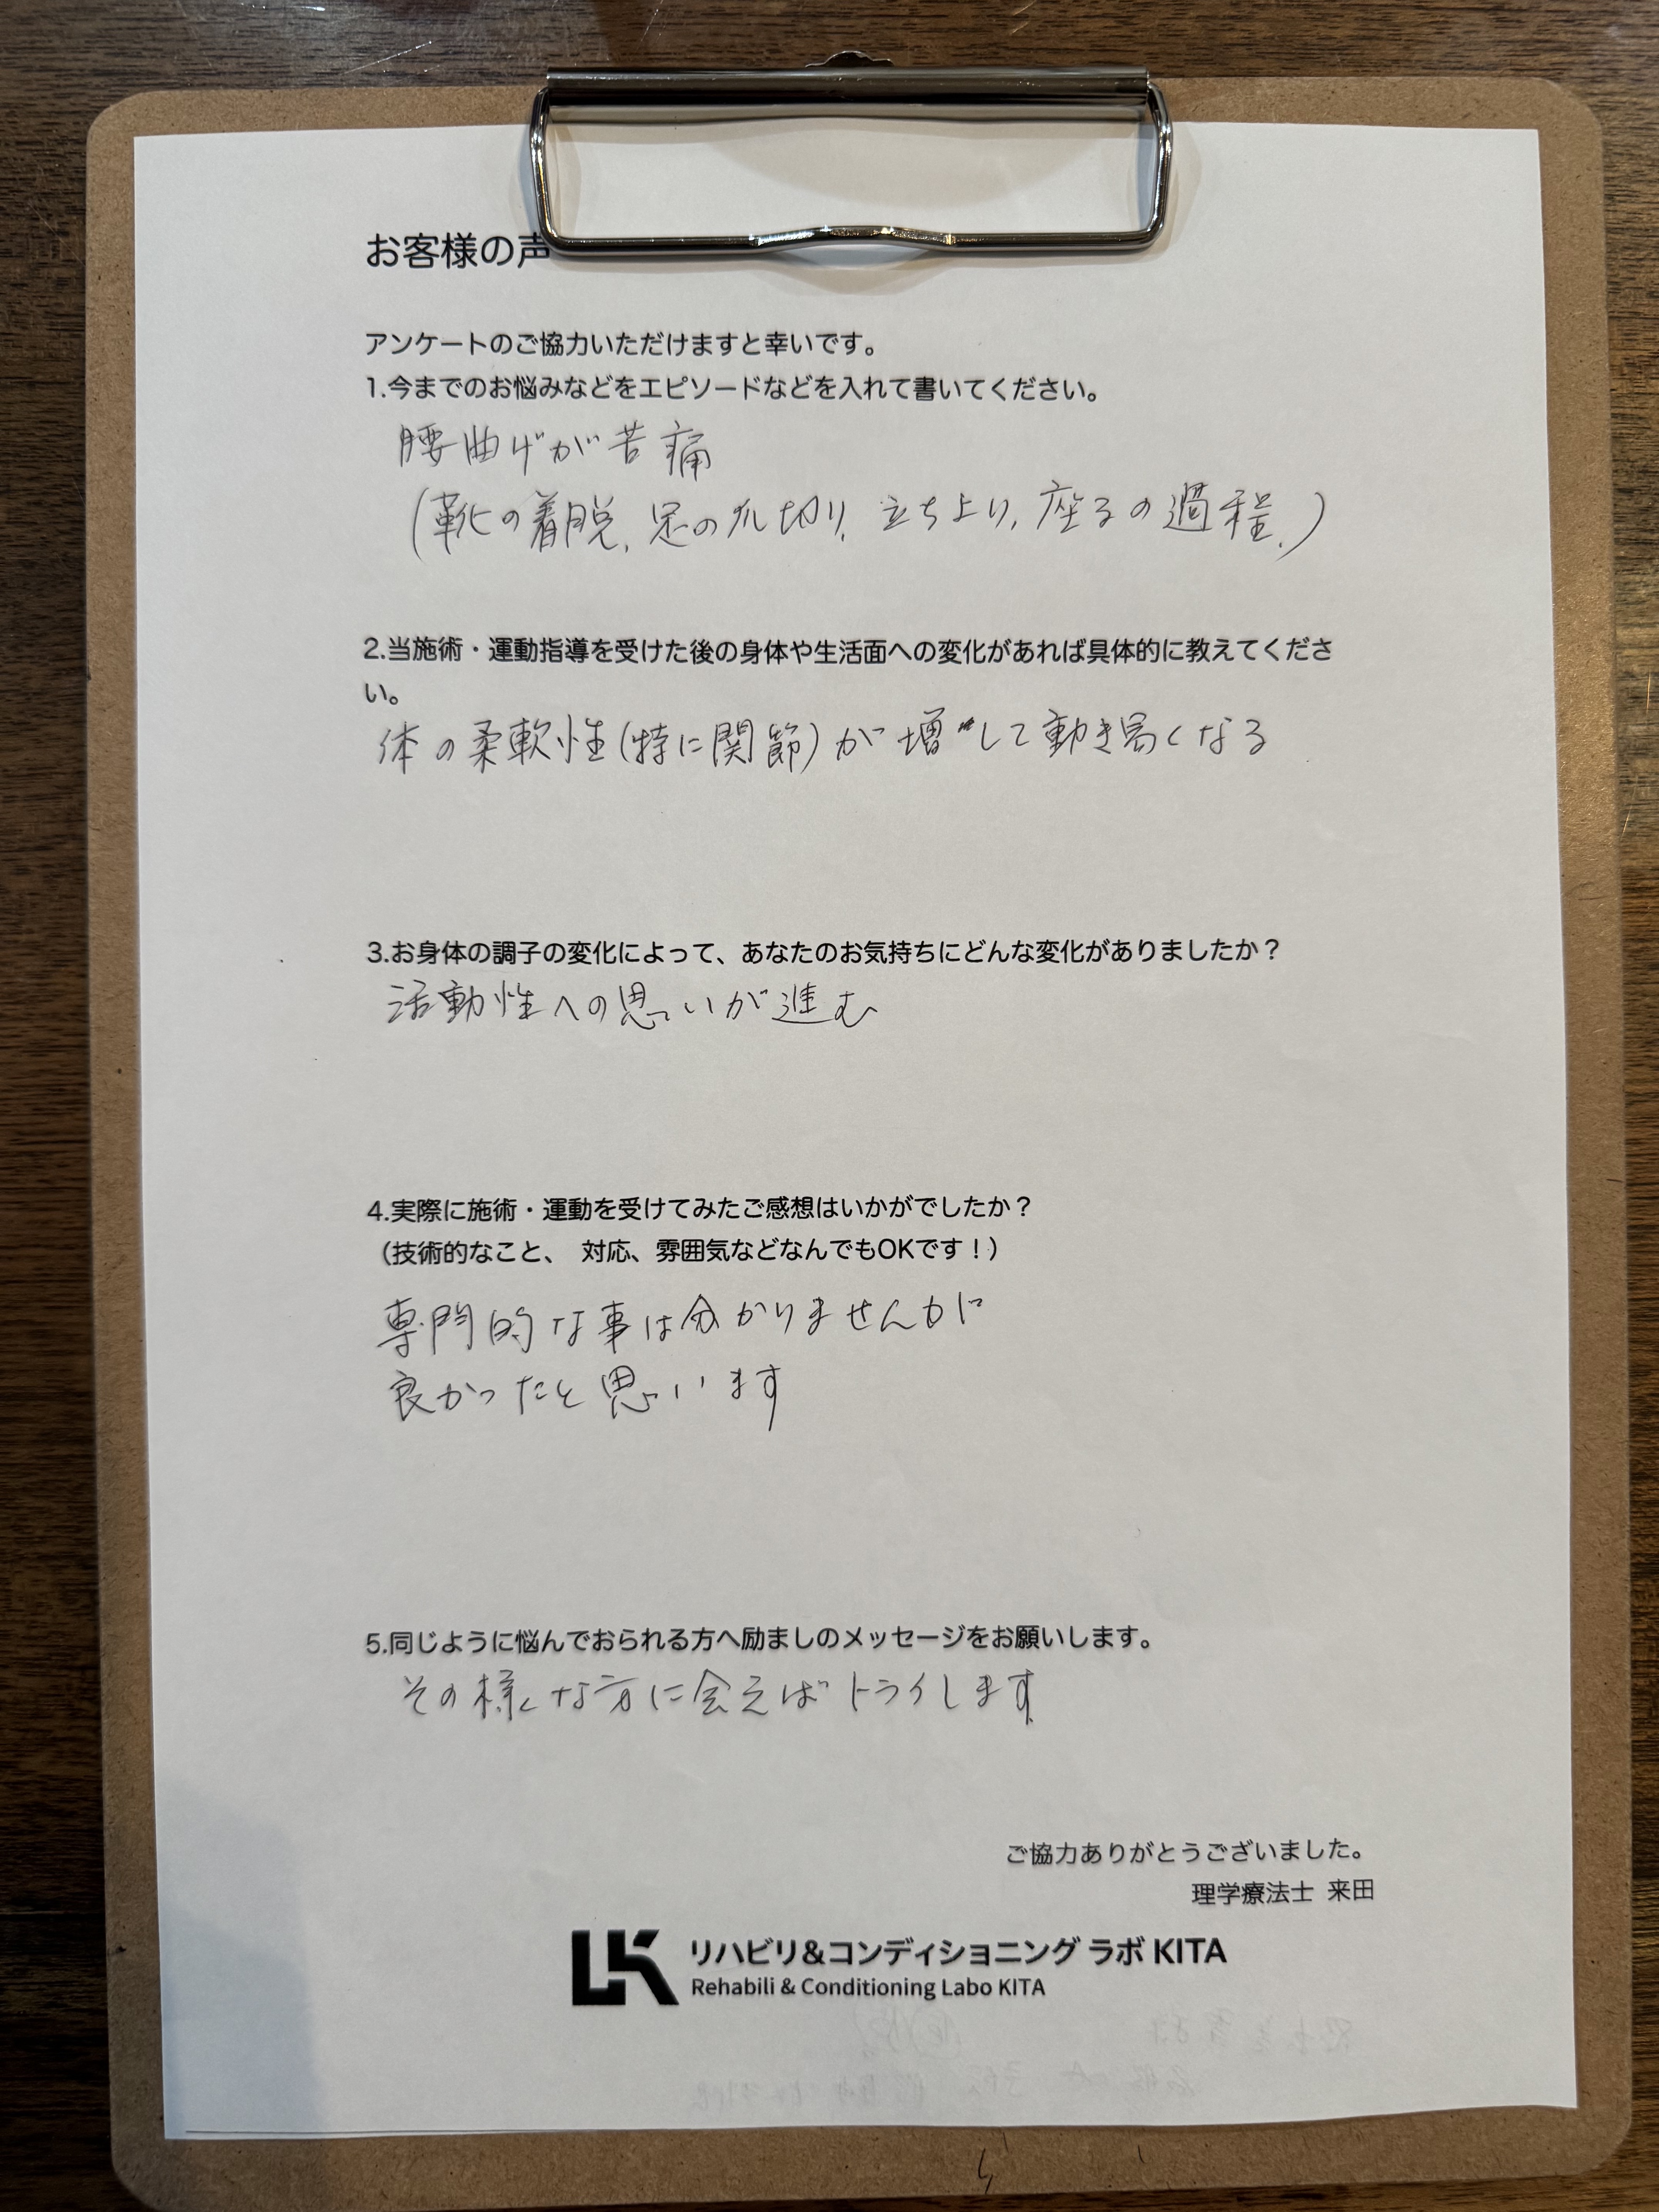 お客様の声
アンケートのご協力いただけますと幸いです。
1.今までのお悩みなどをエピソードなどを入れて書いてください。
腰曲げが苦痛
(靴の着脱、足の爪切り、立ち上り、座るの過程、)
2.当施術・運動指導を受けた後の身体や生活面への変化があれば具体的に教えてくださ
い。
体の柔軟性(特に関節)が増して動き易くなる
3.お身体の調子の変化によって、あなたのお気持ちにどんな変化がありましたか？
活動性への思いが進む
4.実際に施術・運動を受けてみたご感想はいかがでしたか？
（技術的なこと、 対応、雰囲気などなんでもOKです！）
専門的な事は分かりませんが
良かったと思います
5.同じように悩んでおられる方へ励ましのメッセージをお願いします。
その様な方に会えばトライします
ご協力ありがとうございました。
理学療法士 来田
リハビリ＆コンディショニング ラボ KITA
Rehabili & Conditioning Labo KITA